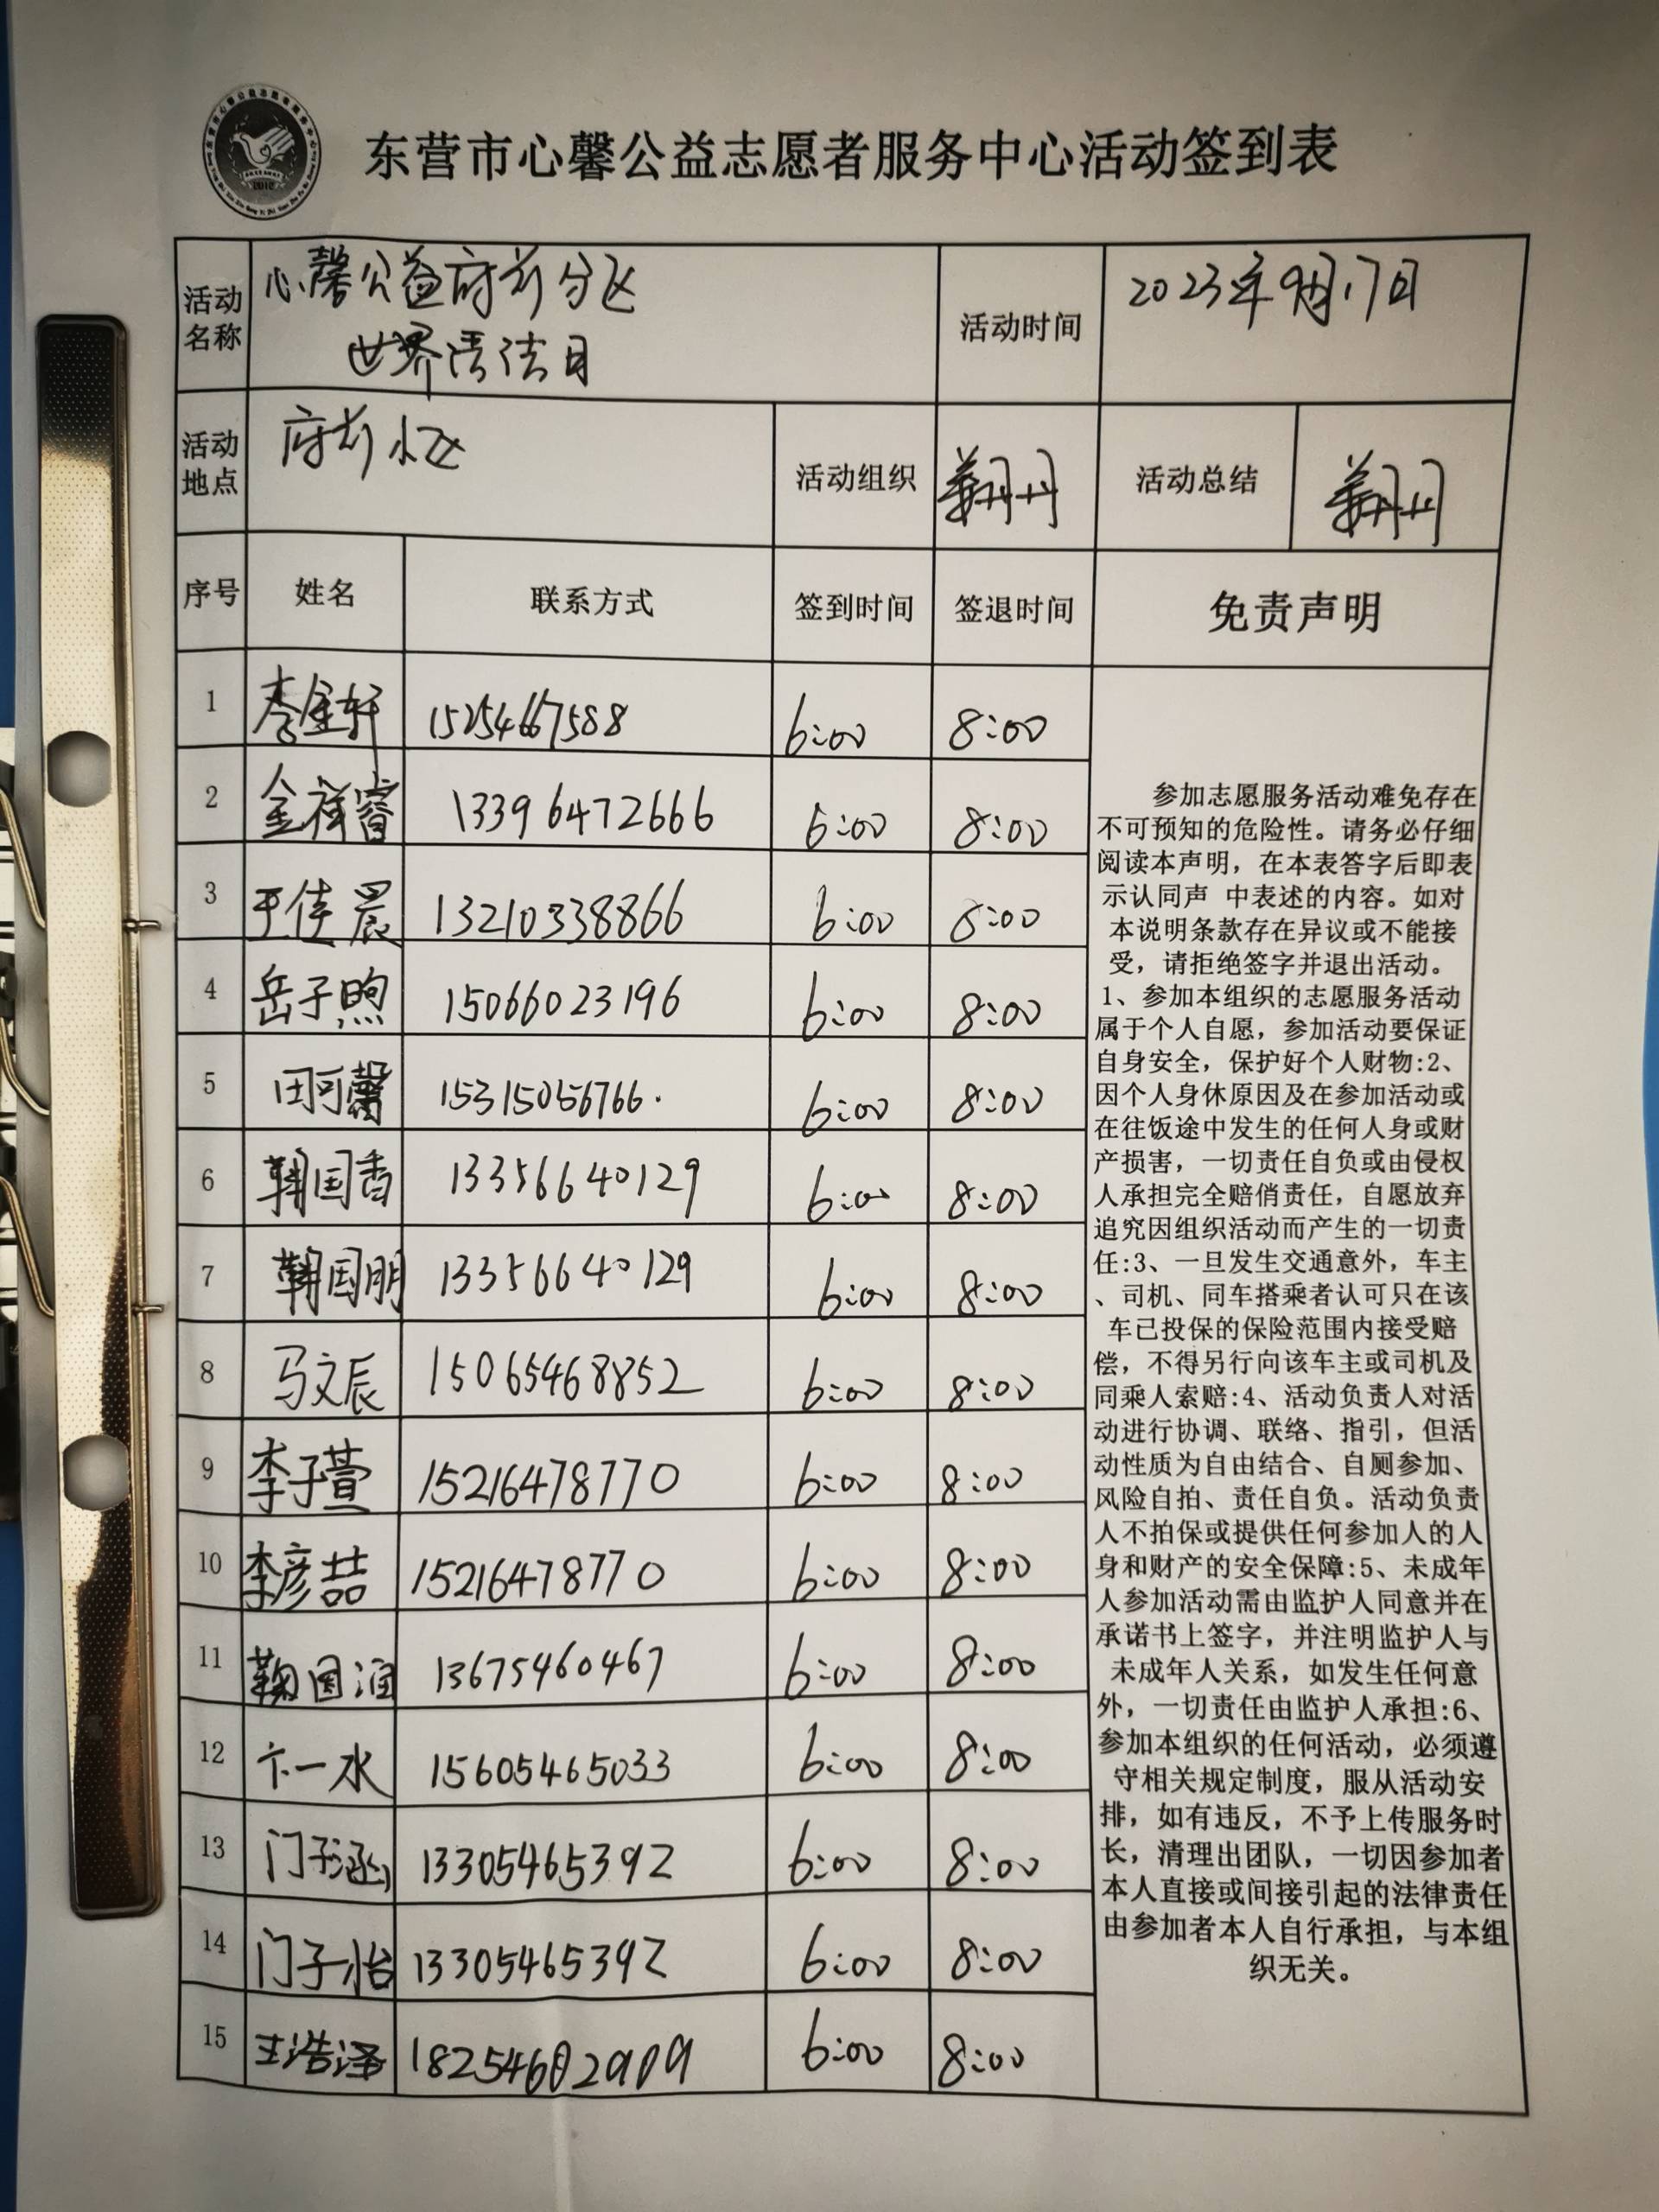 东营市心馨公益志愿者服务中心活动签到表
活动名称 心馨公益府前分区 活动时间 2023年9月17日
世界清洁日
活动地点 府前小区 活动组织 丹丹 活动总结 丹丹
序号 姓名 联系方式 签到时间 签退时间 免责声明
1 李金轩 15254667588 6:00 8:00
2 金祥睿 13396472666 6:00 8:00
3 于佳晨 13210338866 6:00 8:00
4 岳子煦 15066023196 6:00 8:00
5 田可馨 15315056766. 6:00 8:00
6 韩国香 13356640129 6:00 8:00
7 韩国朋 13356640129 6:00 8:00
8 马文辰 15065468852 6:00 8:00
9 李子萱 15216478770 6:00 8:00
10 李彦喆 15216478770 6:00 8:00
11 鞠国润 13675460467 6:00 8:00
12 卞一水 15605465033 6:00 8:00
13 门子涵 13305465392 6:00 8:00
14 门子怡 13305465392 6:00 8:00
15 王浩泽 6:00 8:00
参加志愿服务活动难免存在
不可预知的危险性。请务必仔细
阅读本声明，在本表答字后即表
示认同声 中表述的内容。如对
本说明条款存在异议或不能接
受，请拒绝签字并退出活动。
1、参加本组织的志愿服务活动
属于个人自愿，参加活动要保证
自身安全，保护好个人财物:2、
因个人身休原因及在参加活动或
在往饭途中发生的任何人身或财
产损害，一切责任自负或由侵权
人承担完全赔俏责任，自愿放弃
追究因组织活动而产生的一切责
任:3、一旦发生交通意外，车主
、司机、同车搭乘者认可只在该
车已投保的保险范围内接受赔
偿，不得另行向该车主或司机及
同乘人索赔:4、活动负责人对活
动进行协调、联络、指引，但活
动性质为自由结合、自厕参加、
风险自拍、责任自负。活动负责
人不拍保或提供任何参加人的人
身和财产的安全保障:5、未成年
人参加活动需由监护人同意并在
承诺书上签字，并注明监护人与
未成年人关系，如发生任何意
外，一切责任由监护人承担:6、
参加本组织的任何活动，必须遵
守相关规定制度，服从活动安
排，如有违反，不予上传服务时
长，清理出团队，一切因参加者
本人直接或间接引起的法律责任
由参加者本人自行承担，与本组
织无关。